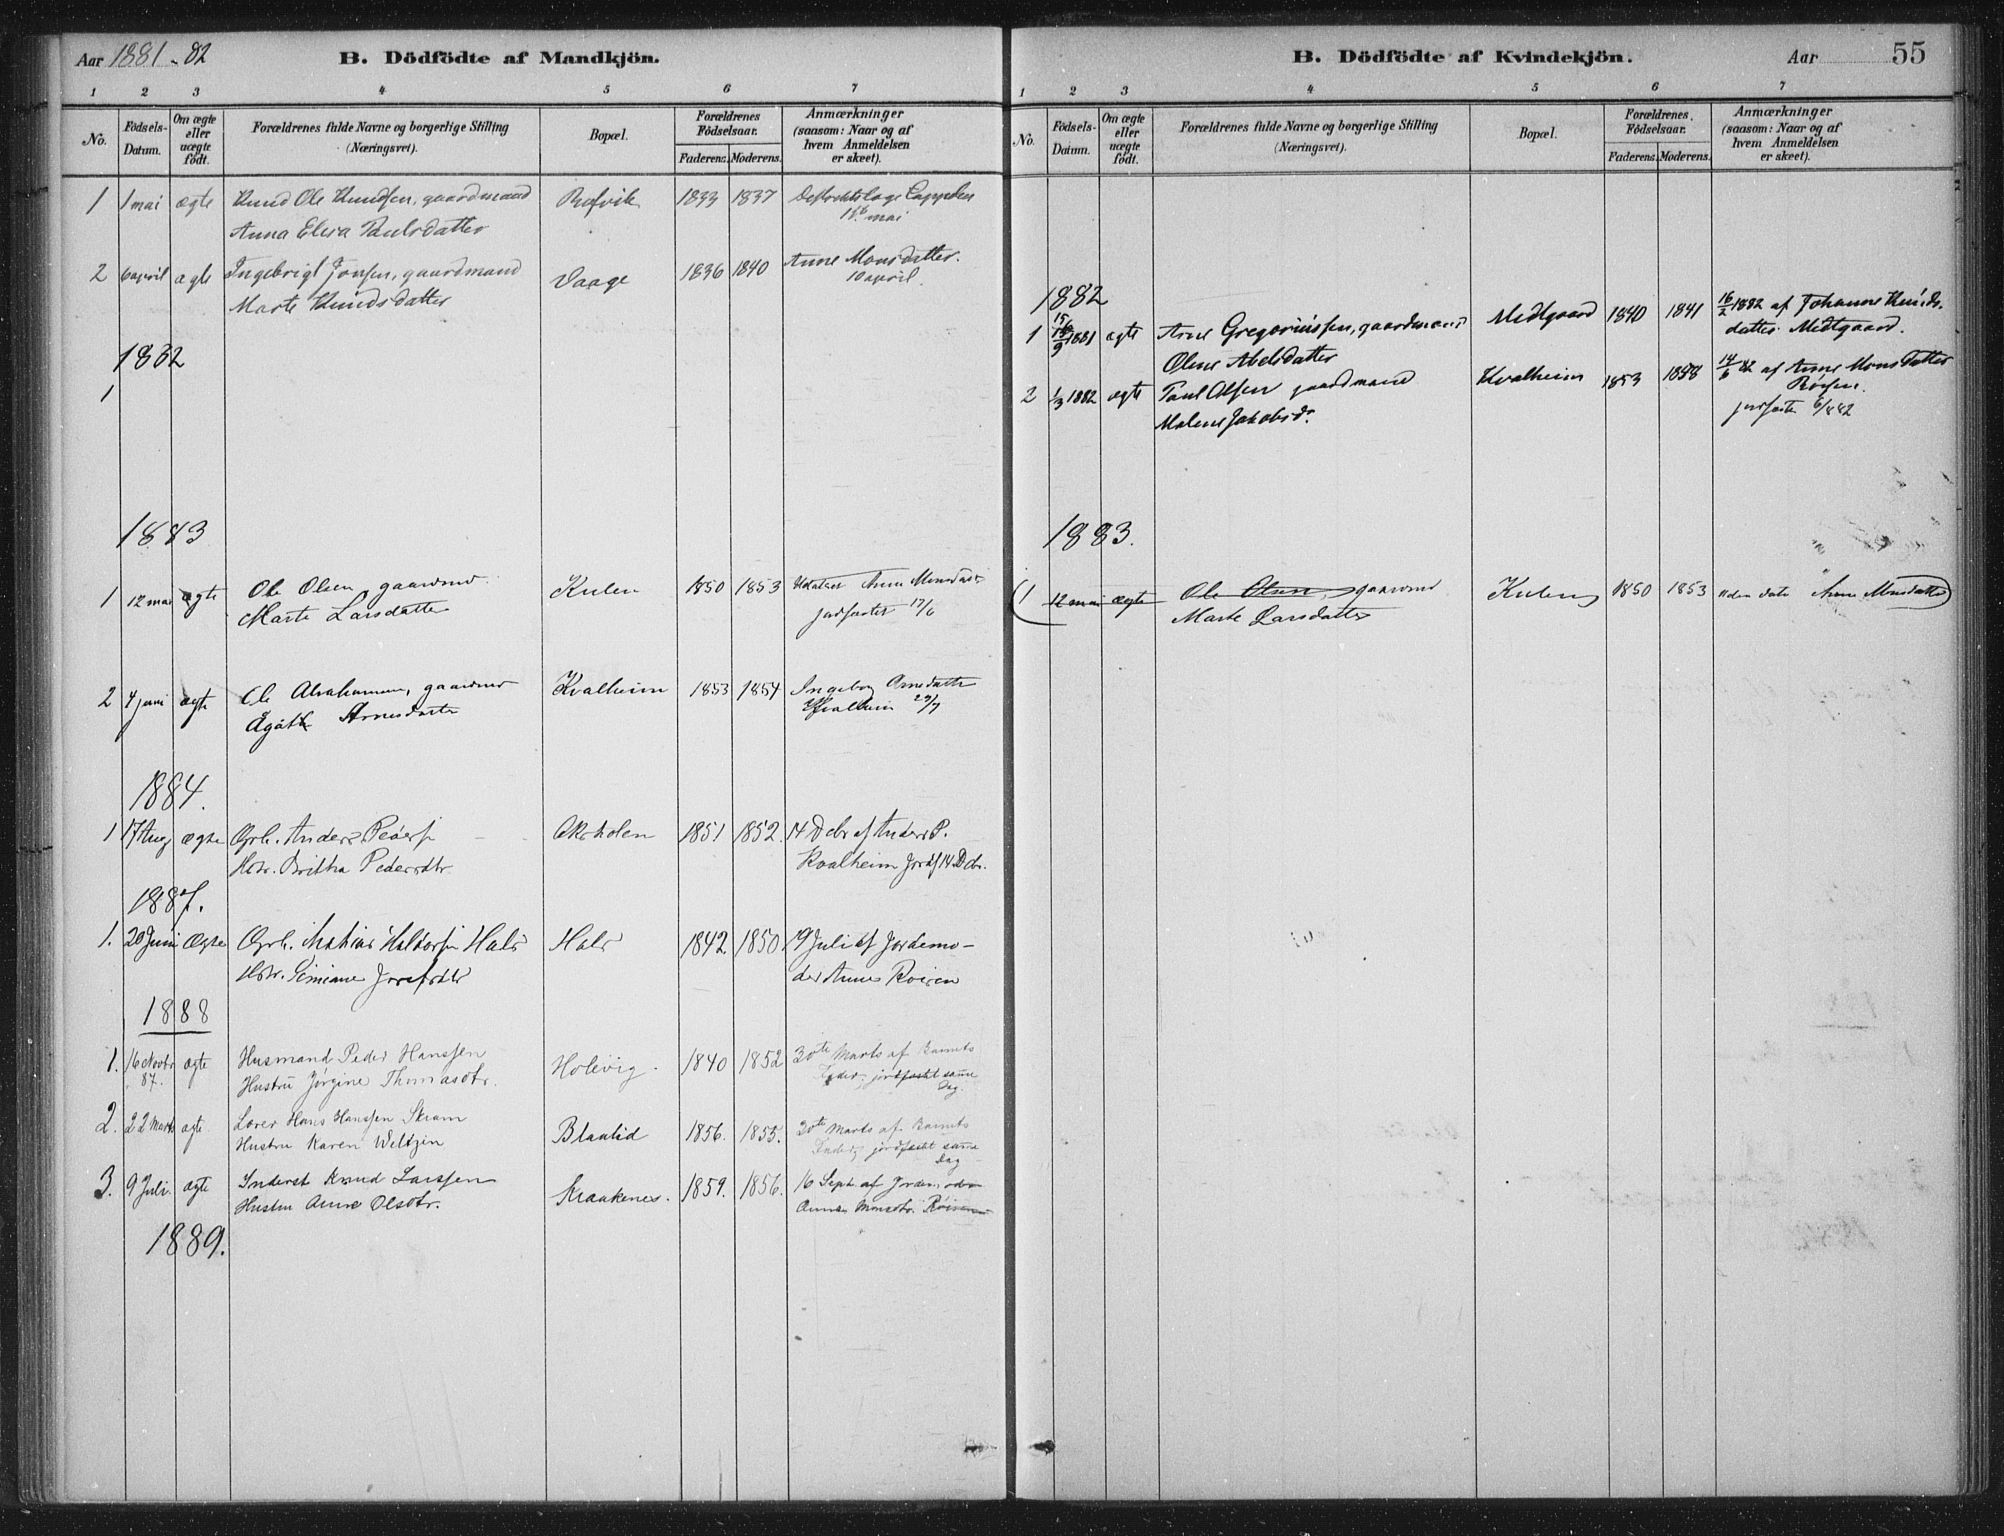 Aar 1881-82
B. Dödfödte af Mandkjön.
1 2 3 4 5 6 7
No.
Födsels-Datum.
Om ægte eller uægte födt.
Forældrenes fulde Navne og borgerlige Stilling (Næringsvei).
Bopæl.
Forældrenes Födselsaar.
Faderens. Moderens.
Anmærkninger (saasom: Naar og af hvem Anmeldelsen er skeet).
1 1 mai ægte Knud Ole Knudsen, gaardmand Refvik 1833 1837 Cappelen
Anna Elisa Paulsdatter mai
2 6 april ægte Ingebrigt Jonsen, gaardmand Vaage 1836 1840 Anne Monsdatter.
Marte Knudsdatter 10 april.
1882
1
1883
1 12 mai ægte Ole Olsen, gaardmd Kulen 1850 1853 Anne Monsdatter
Marte Larsdatter jordfæstet 17/6
2 4 juni ægte Ole Abrahamsen, gaardmd Kvalheim 1853 1854 Ingeborg Arnedatter
Agathe Arnesdatter Kvalheim
1884.
1 17 Aug ægte Gbr. Anders Peders 1851 1852 14 Dcbr af Anders P.
Hstr. Britha Pedersdtr. Kvalheim Jordf 14 Dcbr.
1887.
1. 20 Juni Ægte Gbr. Mathias Haldorsen Hals Hals 1842 1850 19 Juli af Jordemo-
Hstr. Simiane Josefsdtr der Anne Roisen
1888
1. 16 Novbr 87. ægte Husmand Peder Hanssen Holevig. 1840 1852 30te Marts af Barnets
Hustru Jørgine Thomasdtr. Fader; jordfæstet samme Dag.
2. 22 Marts ægte. Lærer Hans Hanssen Skram Blaalid 1856. 1855. 30te Marts af Barnets
Hustru Karen Weltzin Fader; jordfæstet samme Dag
3. 9 Juli. ægte Inderst Knud Larssen Kraakenes. 1859. 1856. 16 Sept. af Jordemoder
Hustru Anne Olsdtr. Anne Monsdtr. Röisen
1889.
B. Dödfödte af Kvindekjön.
Aar 55
1 2 3 4 5 6 7
No.
Födsels-Datum.
Om ægte eller uægte födt.
Forældrenes fulde Navne og borgerlige Stilling (Næringsvei).
Bopæl.
Forældrenes Födselsaar.
Faderens. Moderens.
Anmærkninger (saasom: Naar og af hvem Anmeldelsen er skeet).
1882
1 15/9 1881 ægte Arne Gregoriussen, gaardmand Midtgaard 1840 1841 16/2 1882 af Johanne Knuds-
Oline Abelsdatter datter Midtgaard.
2 1/3 1882 ægte Paul Olsen gaardmand Kvalheim 1853 1858 14/6 82 af Anne Monsdatter
Malene Jakobsd. Röisen.
jordfæstet 6/6 82
1883.
(1 12 mai ægte Ole Olsen, gaardmd Kulen 1850 1853 uden dato Anne Monsdatter)
Marte Larsdatter